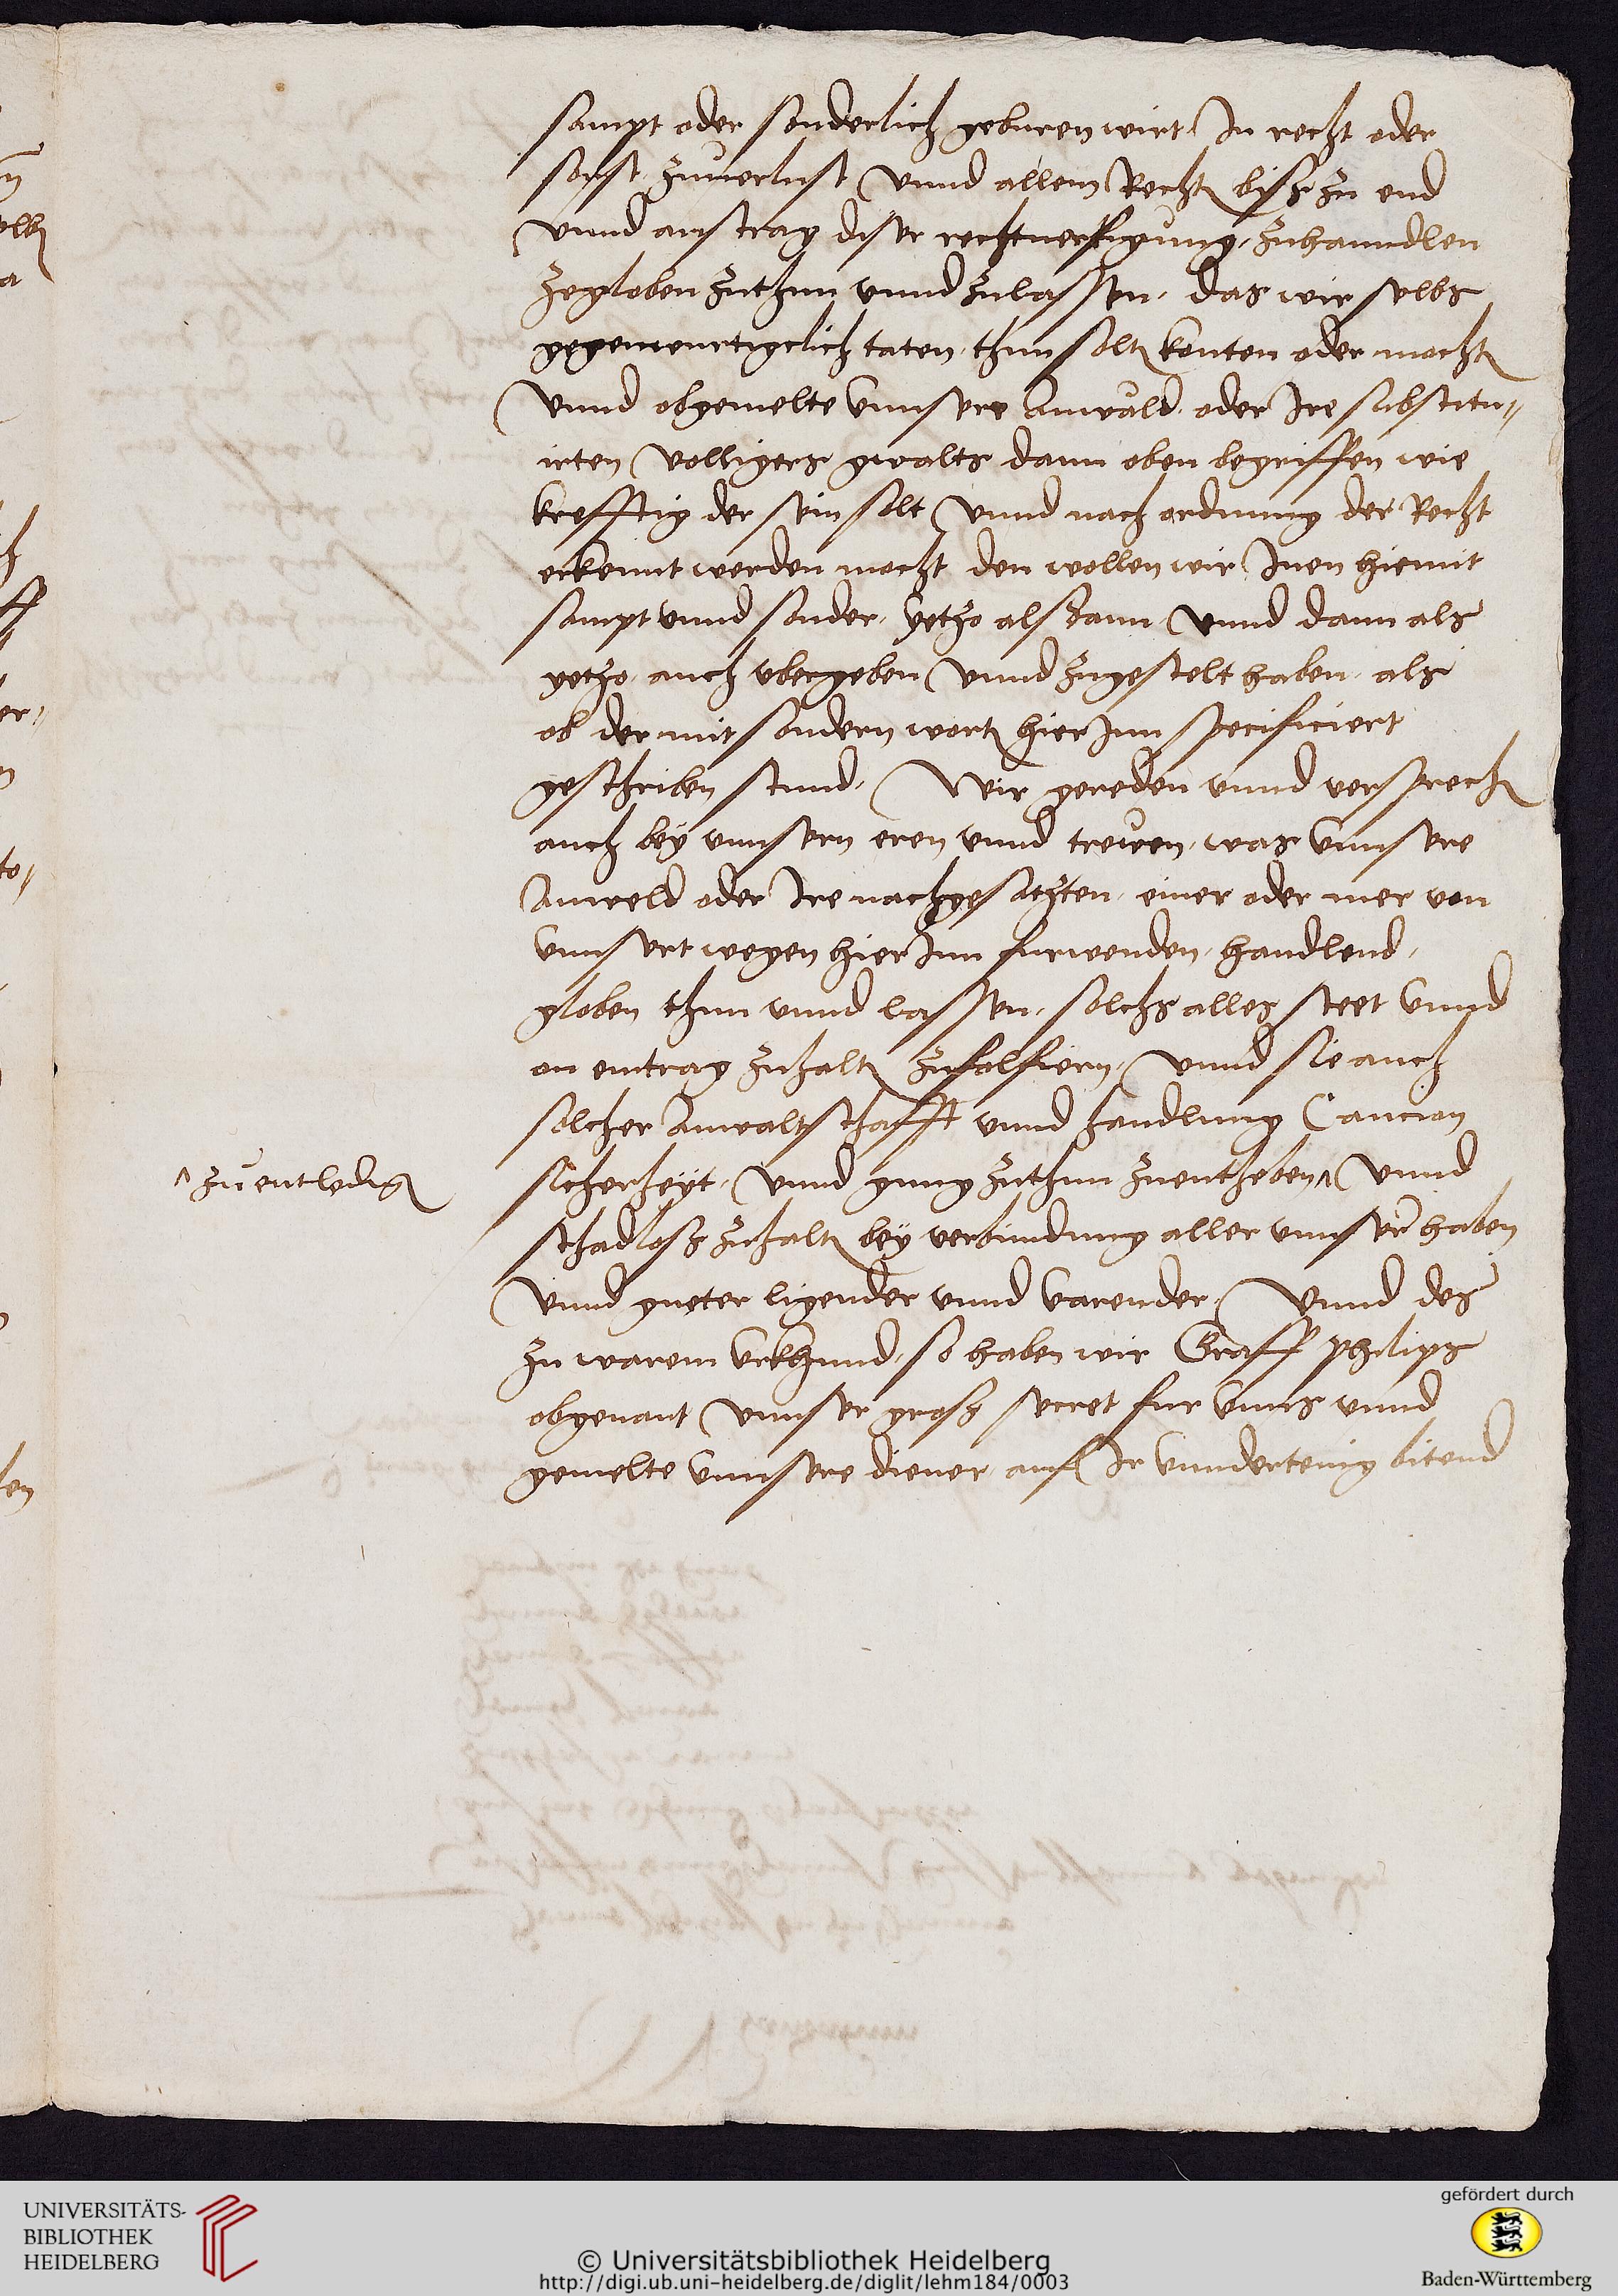 sampt oder sonderlich geburen wirt, In recht oder
sonst, zuuerlust vnnd allem Rechten bisz zu end
vnnd austrag diser rechtuerfigung, zuhanndlen
zegloben zuthun vnnd zulassen, das wir selbs
gegenwurtigclich taten, thun solten konten oder mochten
vnnd obgemelte vnnsere Anwäld, oder Ire substitu„
irten volligers gwalts dann oben begriffen wie
krefftig der sein solt vnnd nach ordnung der Recht
erkennt werden mocht den wollen wir Inen hiemit
sampt vnnd sonder, yetzo alszdann vnnd dann als
yetzo, auch vbergeben vnnd zugestelt haben, als
ob der mit sondern worten hierInn specificiert
geschriben stund, Wir gereden vnnd versprechen
auch bey vnnsern eren vnnd trewen, was vnnsere
Anweld oder Ire nachgesatzten, einer oder mer von
vnnsert wegen hierInn furwenden, handlend,
globen thun vnnd lassen, solchs alles steet vnnd
on eintrag zuhalten zu volfiern, vnnd sie auch
solcher Anwaltschafft vnnd handlung Caucion
^ zu entledigen
sicherheyt, vnnd gnug zuthun zuentheben ^ vnnd
schadlosz zuhalten bey verbindung aller vnnser haben
vnnd gueter ligender vnnd varender, Vnnd des
zu warem vrkhund, so haben wir Graff philips
obgenant vnnser grosz secret fur vnns vnnd
gemelte vnnsere diener, auf Ir vnndertenig bitend
UNIVERSITÄTS-
BIBLIOTHEK
HEIDELBERG
© Universitätsbibliothek Heidelberg
http://digi.ub.uni-heidelberg.de/diglit/lehm184/0003
gefördert durch
Baden-Württemberg